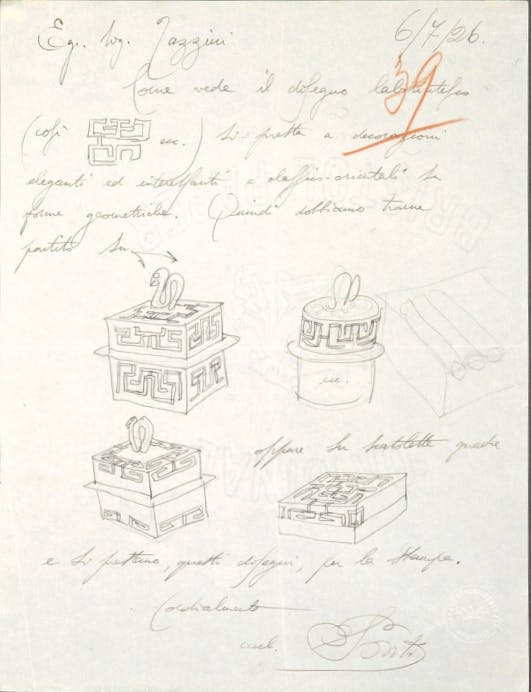 6/7/26.
Egr. Sig. Tazzini
39
Come vede il disegno labirintesco
(così ecc.) si presta a decorazioni
eleganti ed interessanti e classico-orientali su
forme geometriche. Quindi dobbiamo trarne
partito su
ecc.
oppure su scatolette quadre
e si prestano, questi disegni, per la stampa.
Cordialmente